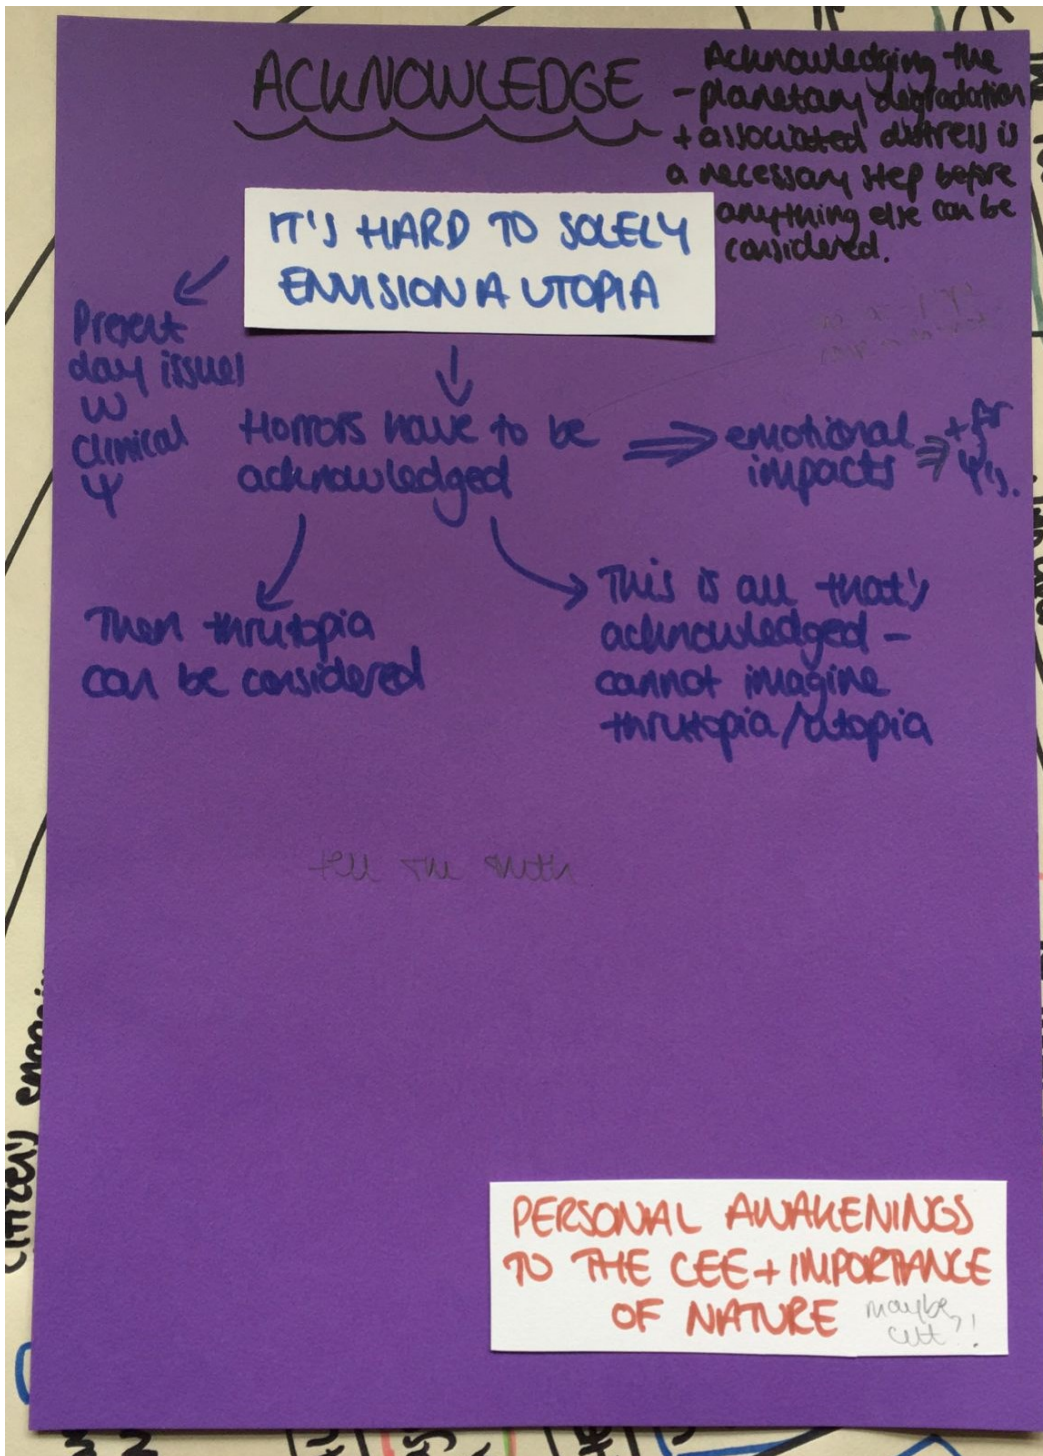 ACKNOWLEDGE
Acknowledging the
planetary degradation
+ associated distress is
a necessary step before
anything else can be
considered.
IT'S HARD TO SOLELY
ENVISION A UTOPIA
Present
day issues
W
clinical
Ψ
Horrors have to be
acknowledged
emotional
impacts
+ for
Ψ's.
Then thrutopia
can be considered
This is all that's
acknowledged –
cannot imagine
thrutopia/utopia
tell the truth
PERSONAL AWAKENINGS
TO THE CEE + IMPORTANCE
OF NATURE
maybe
cut?!
citizen's